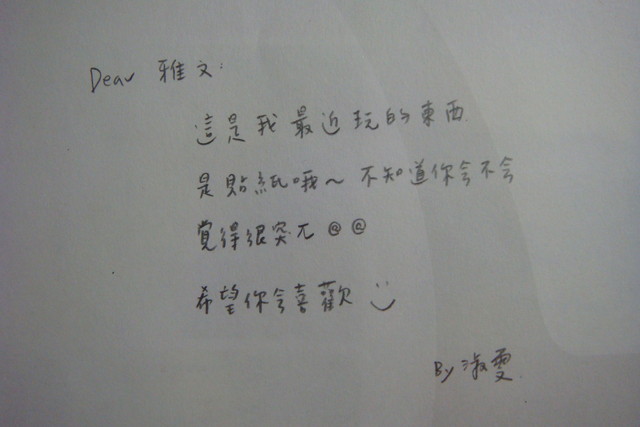 Dear 雅文:
這是我最近玩的東西
是貼紙哦~ 不知道你会不会
覺得很突兀 @ @
希望你会喜歡 :)
By 淑雯